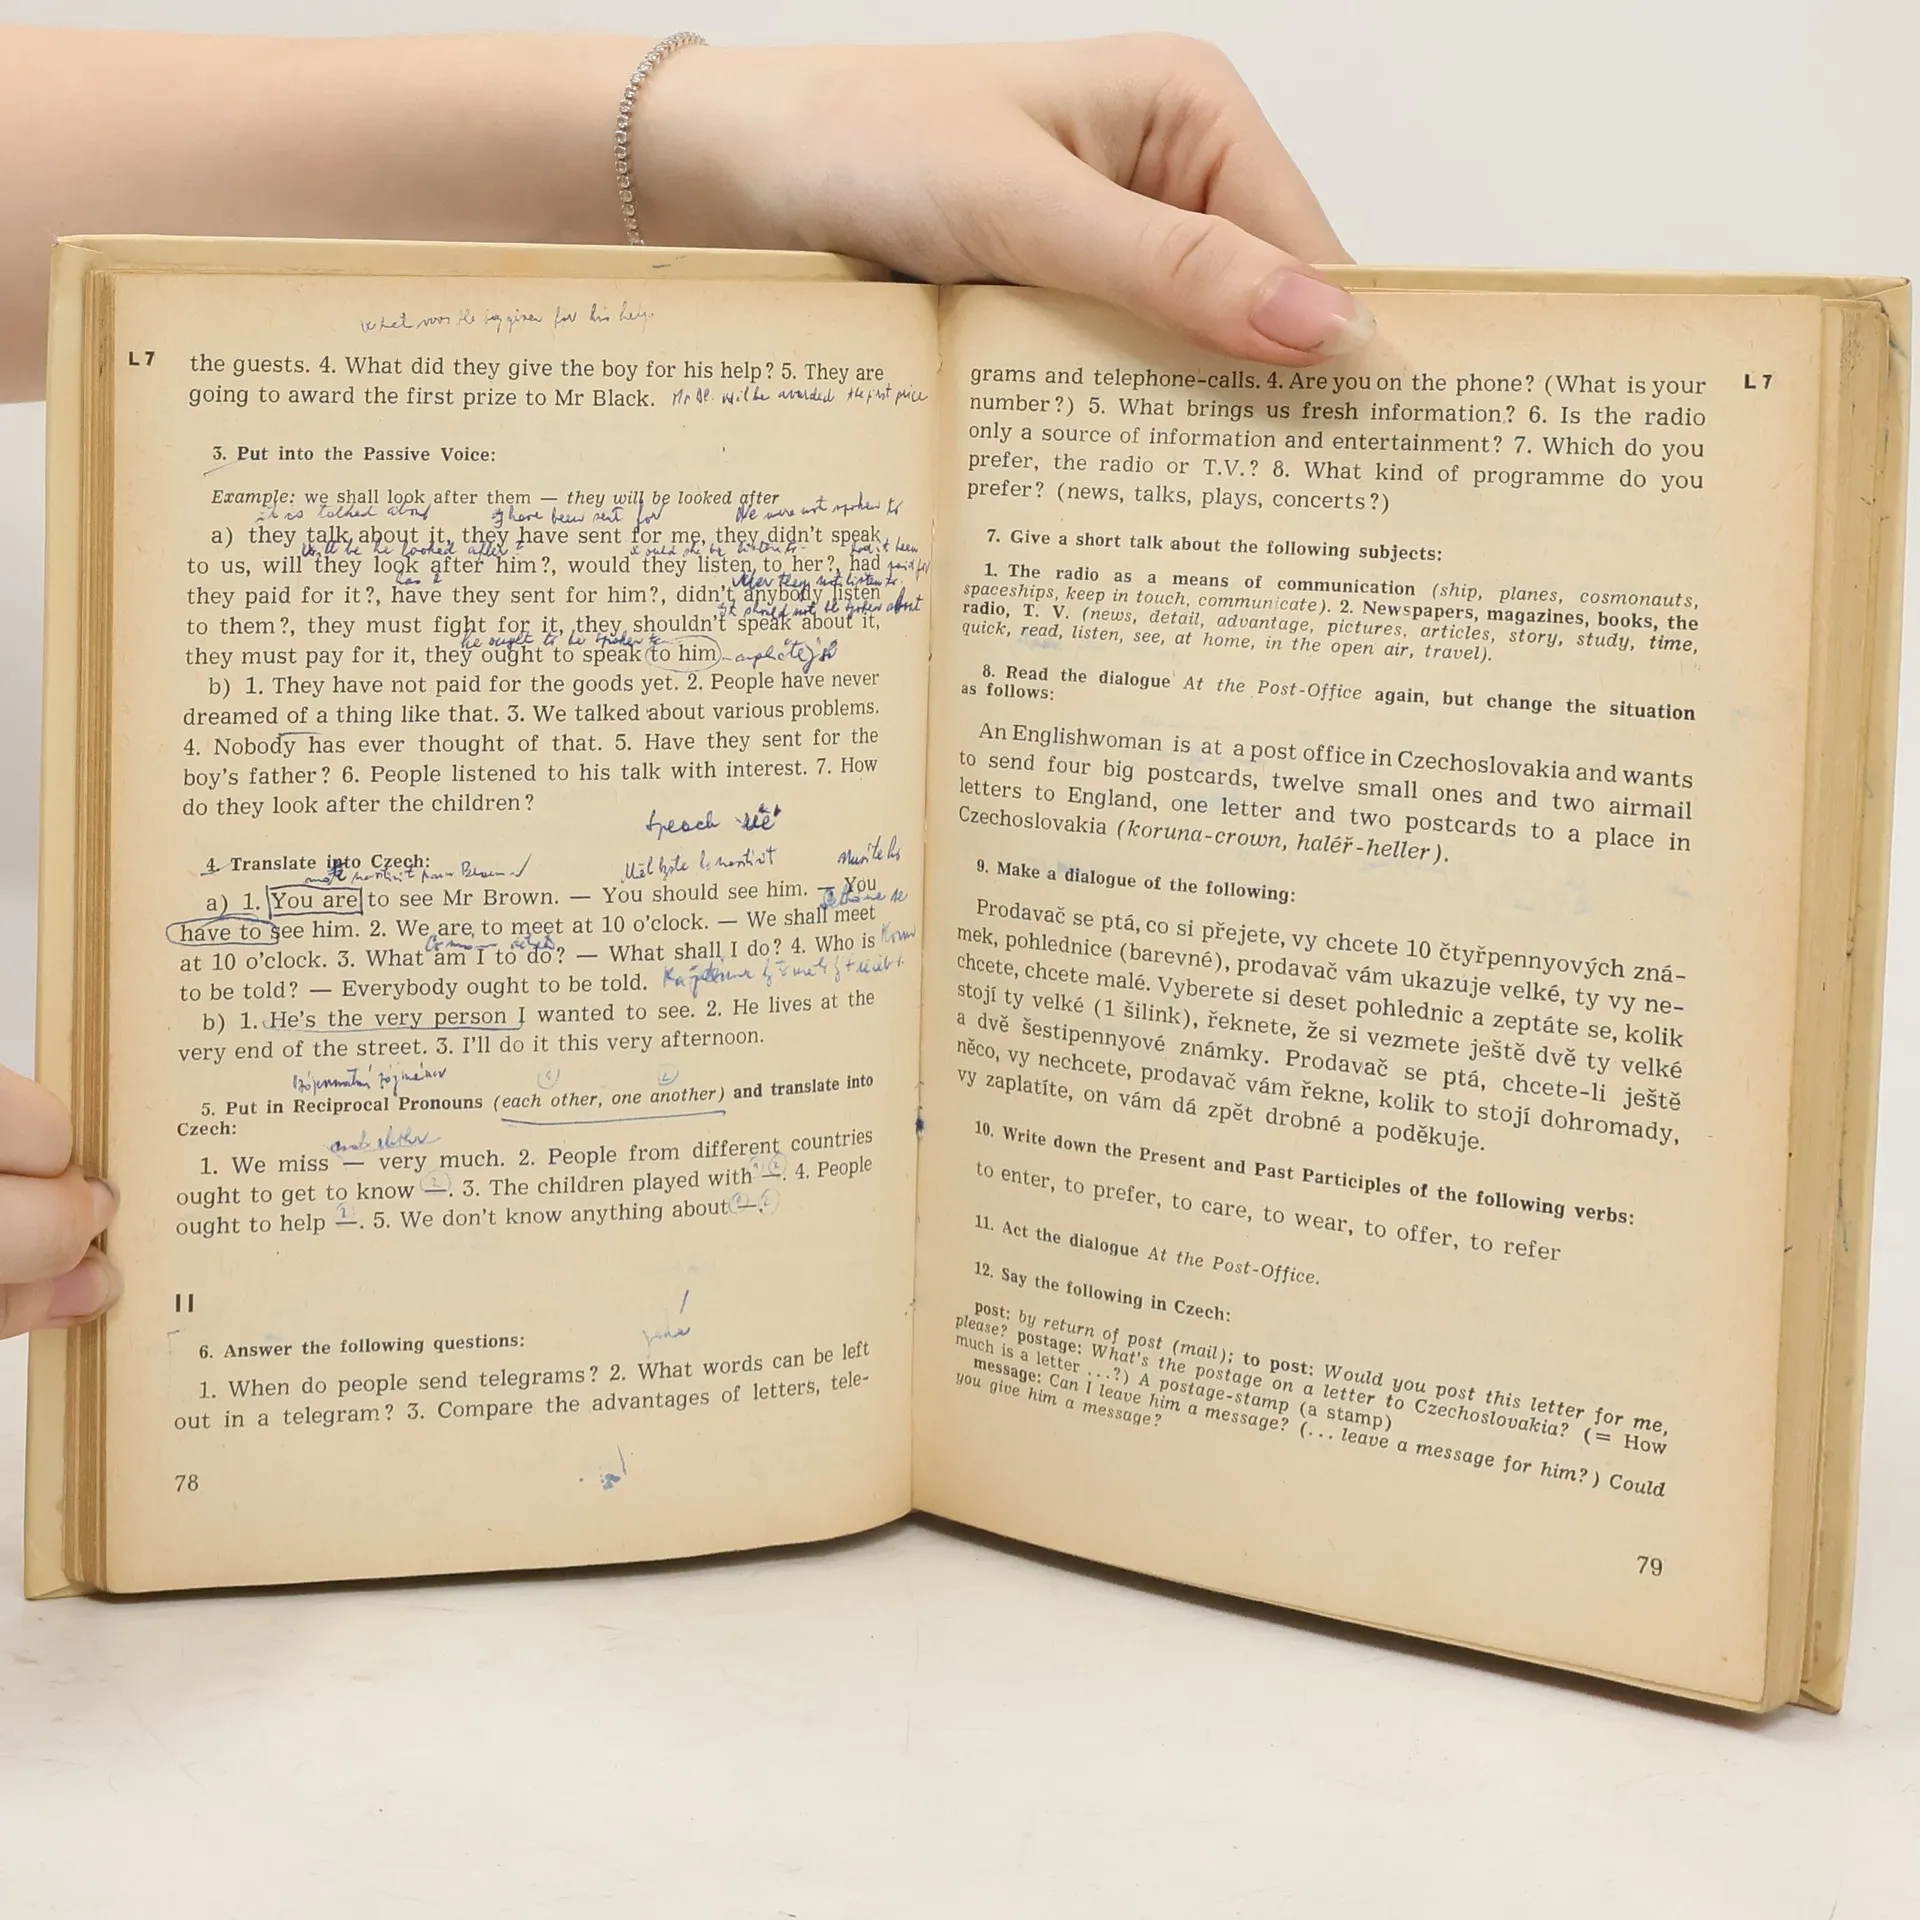 What was the boy given for his help.
L 7
the guests. 4. What did they give the boy for his help? 5. They are
going to award the first prize to Mr Black. will be awarded the first price
3. Put into the Passive Voice:
Example: we shall look after them — they will be looked after
it is talked about I have been sent for We were not spoken to
a) they talk about it, they have sent for me, they didn't speak
will be he looked after? would she be listened to had it been
to us, will they look after him?, would they listen to her?, had paid for
they paid for it?, have they sent for him?, didn't anybody listen
it should not be spoken about
to them?, they must fight for it, they shouldn't speak about it,
he ought to be spoken to
they must pay for it, they ought to speak to him
b) 1. They have not paid for the goods yet. 2. People have never
dreamed of a thing like that. 3. We talked about various problems.
4. Nobody has ever thought of that. 5. Have they sent for the
boy's father? 6. People listened to his talk with interest. 7. How
do they look after the children?
4. Translate into Czech:
a) 1. You are to see Mr Brown. — You should see him. — You
have to see him. 2. We are to meet at 10 o'clock. — We shall meet
at 10 o'clock. 3. What am I to do? — What shall I do? 4. Who is
to be told? — Everybody ought to be told.
b) 1. He's the very person I wanted to see. 2. He lives at the
very end of the street. 3. I'll do it this very afternoon.
1 2
5. Put in Reciprocal Pronouns (each other, one another) and translate into
Czech:
1. We miss — very much. 2. People from different countries
ought to get to know —. 3. The children played with —. 4. People
ought to help —. 5. We don't know anything about —.
II
6. Answer the following questions:
1. When do people send telegrams? 2. What words can be left
out in a telegram? 3. Compare the advantages of letters, tele-
78
L 7
grams and telephone-calls. 4. Are you on the phone? (What is your
number?) 5. What brings us fresh information? 6. Is the radio
only a source of information and entertainment? 7. Which do you
prefer, the radio or T.V.? 8. What kind of programme do you
prefer? (news, talks, plays, concerts?)
7. Give a short talk about the following subjects:
1. The radio as a means of communication (ship, planes, cosmonauts,
spaceships, keep in touch, communicate). 2. Newspapers, magazines, books, the
radio, T. V. (news, detail, advantage, pictures, articles, story, study, time,
quick, read, listen, see, at home, in the open air, travel).
8. Read the dialogue At the Post-Office again, but change the situation
as follows:
An Englishwoman is at a post office in Czechoslovakia and wants
to send four big postcards, twelve small ones and two airmail
letters to England, one letter and two postcards to a place in
Czechoslovakia (koruna-crown, haléř-heller).
9. Make a dialogue of the following:
Prodavač se ptá, co si přejete, vy chcete 10 čtyřpennyových zná-
mek, pohlednice (barevné), prodavač vám ukazuje velké, ty vy ne-
chcete, chcete malé. Vyberete si deset pohlednic a zeptáte se, kolik
stojí ty velké (1 šilink), řeknete, že si vezmete ještě dvě ty velké
a dvě šestipennyové známky. Prodavač se ptá, chcete-li ještě
něco, vy nechcete, prodavač vám řekne, kolik to stojí dohromady,
vy zaplatíte, on vám dá zpět drobné a poděkuje.
10. Write down the Present and Past Participles of the following verbs:
to enter, to prefer, to care, to wear, to offer, to refer
11. Act the dialogue At the Post-Office.
12. Say the following in Czech:
post: by return of post (mail); to post: Would you post this letter for me,
please? postage: What's the postage on a letter to Czechoslovakia? (= How
much is a letter ...?) A postage-stamp (a stamp)
message: Can I leave him a message? (... leave a message for him?) Could
you give him a message?
79